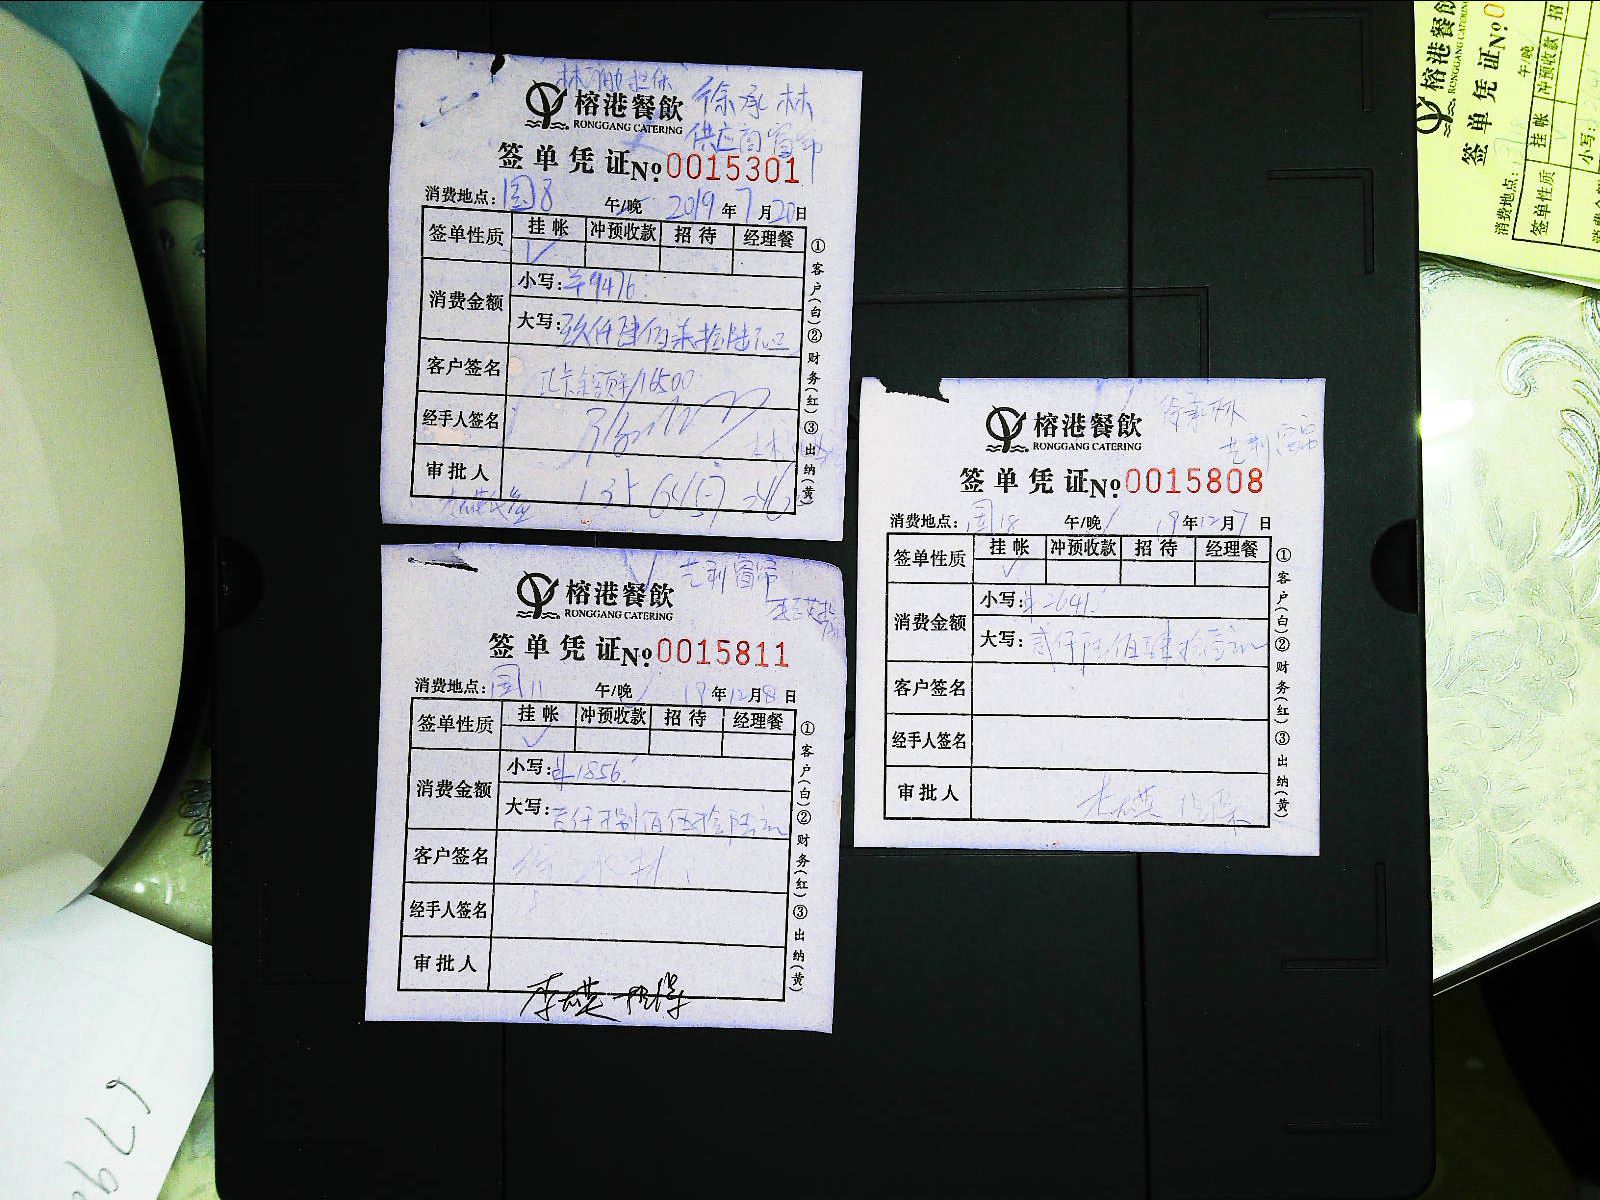 担保
徐承林
榕港餐飲
RONGGANG CATERING
供应商窗帘
签单凭证 №0015301
消费地点：国8 午/晚 2019年7月20日
签单性质 挂帐 冲预收款 招待 经理餐
✓
消费金额 小写：￥9476.
大写：玖仟肆佰柒拾陆元正
客户签名
经手人签名
审批人
①客户(白)②财务(红)③出纳(黄)
艺利窗帘
榕港餐飲
RONGGANG CATERING
签单凭证 №0015811
消费地点：国11 午/晚 19年12月8日
签单性质 挂帐 冲预收款 招待 经理餐
✓
消费金额 小写：￥1856.
大写：壹仟捌佰伍拾陆元
客户签名 徐承林
经手人签名
审批人
担保
①客户(白)②财务(红)③出纳(黄)
徐承林
榕港餐飲
RONGGANG CATERING
艺利窗帘
签单凭证 №0015808
消费地点：国18 午/晚 19年12月7日
签单性质 挂帐 冲预收款 招待 经理餐
✓
消费金额 小写：￥2641.
大写：贰仟陆佰肆拾壹元
客户签名
经手人签名
审批人 担保
①客户(白)②财务(红)③出纳(黄)
榕港餐飲
RONGGANG CATERING
签单凭证 №0
消费地点： 午/晚
签单性质 挂帐 冲预收款 招
小写：